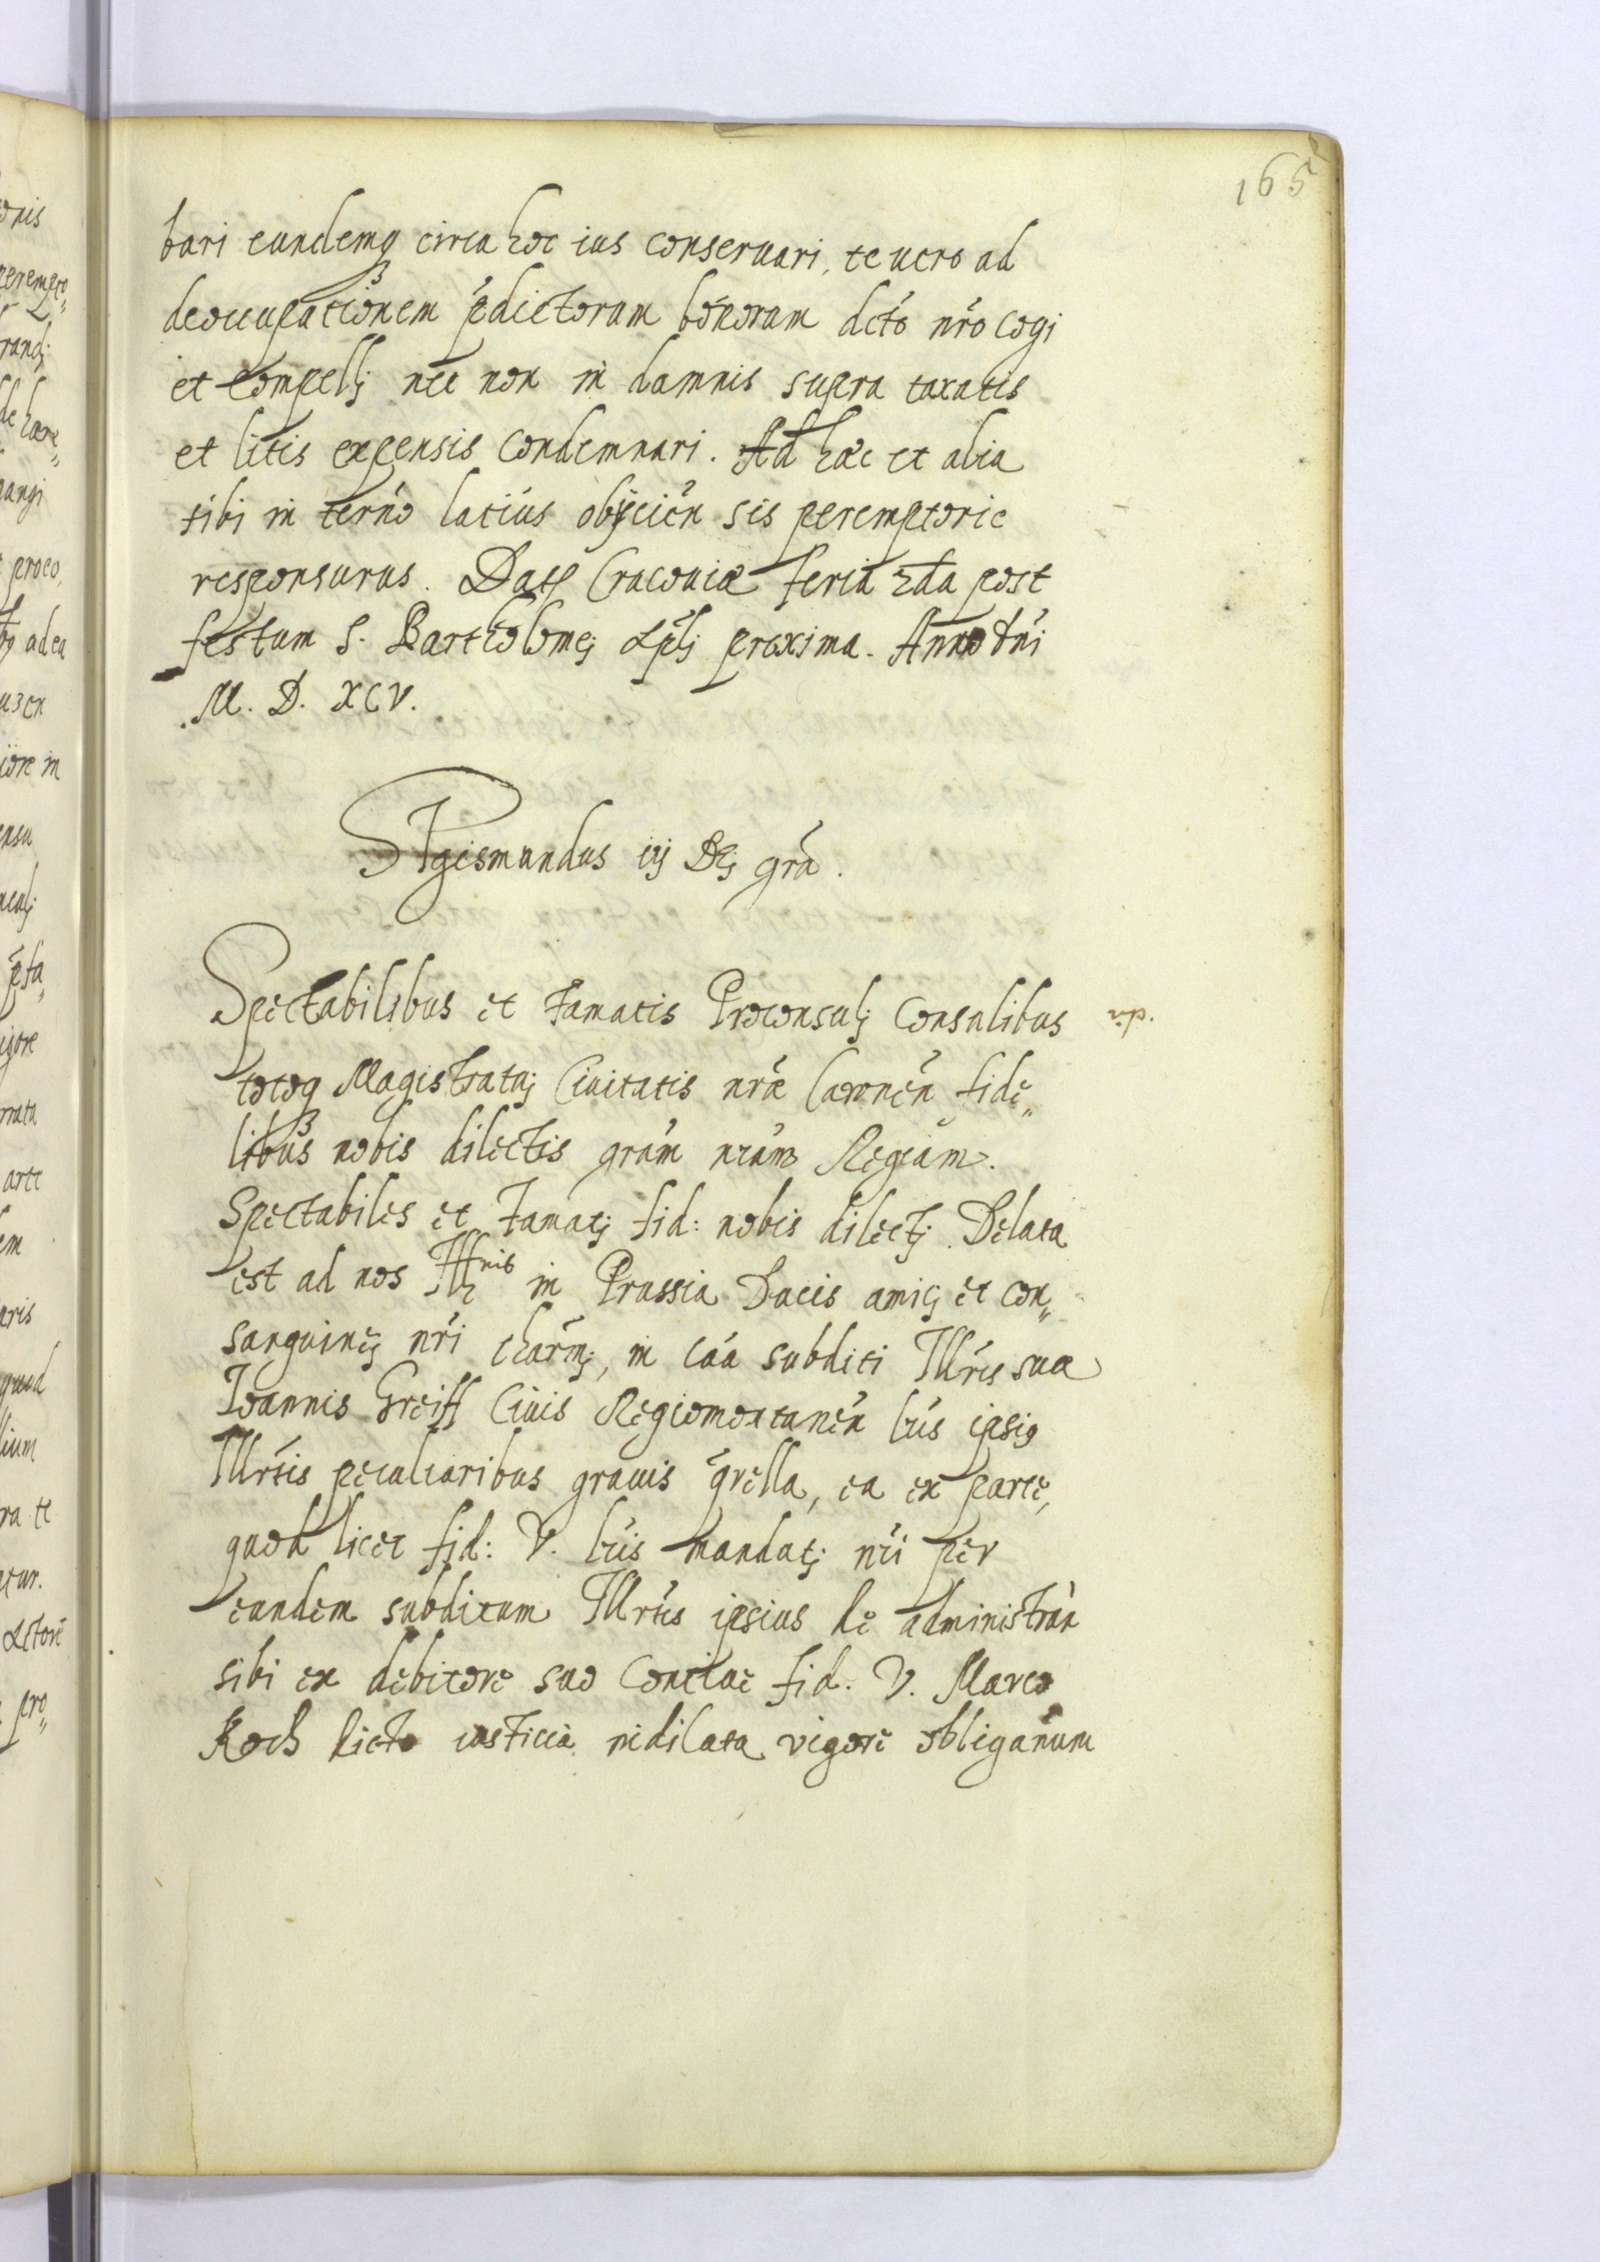 165
bari eundemq circa hoc ius conseruari, te uero ad
deoccupationem pdictorum bonorum dcto nro cogi
et compellj nec non in damnis supra taxatis
et litis expensis condemnari. Ad haec et alia
tibi in termo latius obijcien sis peremptorie
responsurus. Dat Cracouiæ feria 2da post
festum S. Bartholomej Aplj proxima. Anno dni
M. D. XCV.
Sigismundus iij Dej gra.
Spectabilibus et famatis Proconsulj Consulibus
totoq Magistratuj Ciuitatis nræ Caunen fide„
libus nobis dilectis gram nram Regiam.
Spectabiles et famatj fid: nobis dilectj. Delata
est ad nos Illnis in Prussia Ducis amicj et con„
sanguinej nri charmj, in caa subditi Illris suæ
Joannis Greiff Ciuis Regiomontanen lris ipsig
Illrtis peculiaribus grauis qrella, ea ex parte,
quod licet fid: V. lris mandatj nri per
eundem subditum Illrtis ipsius de administran
sibi ex debitore suo Conciue fid. V. Marco
Koch dicto iusticia indilata vigore obliganum